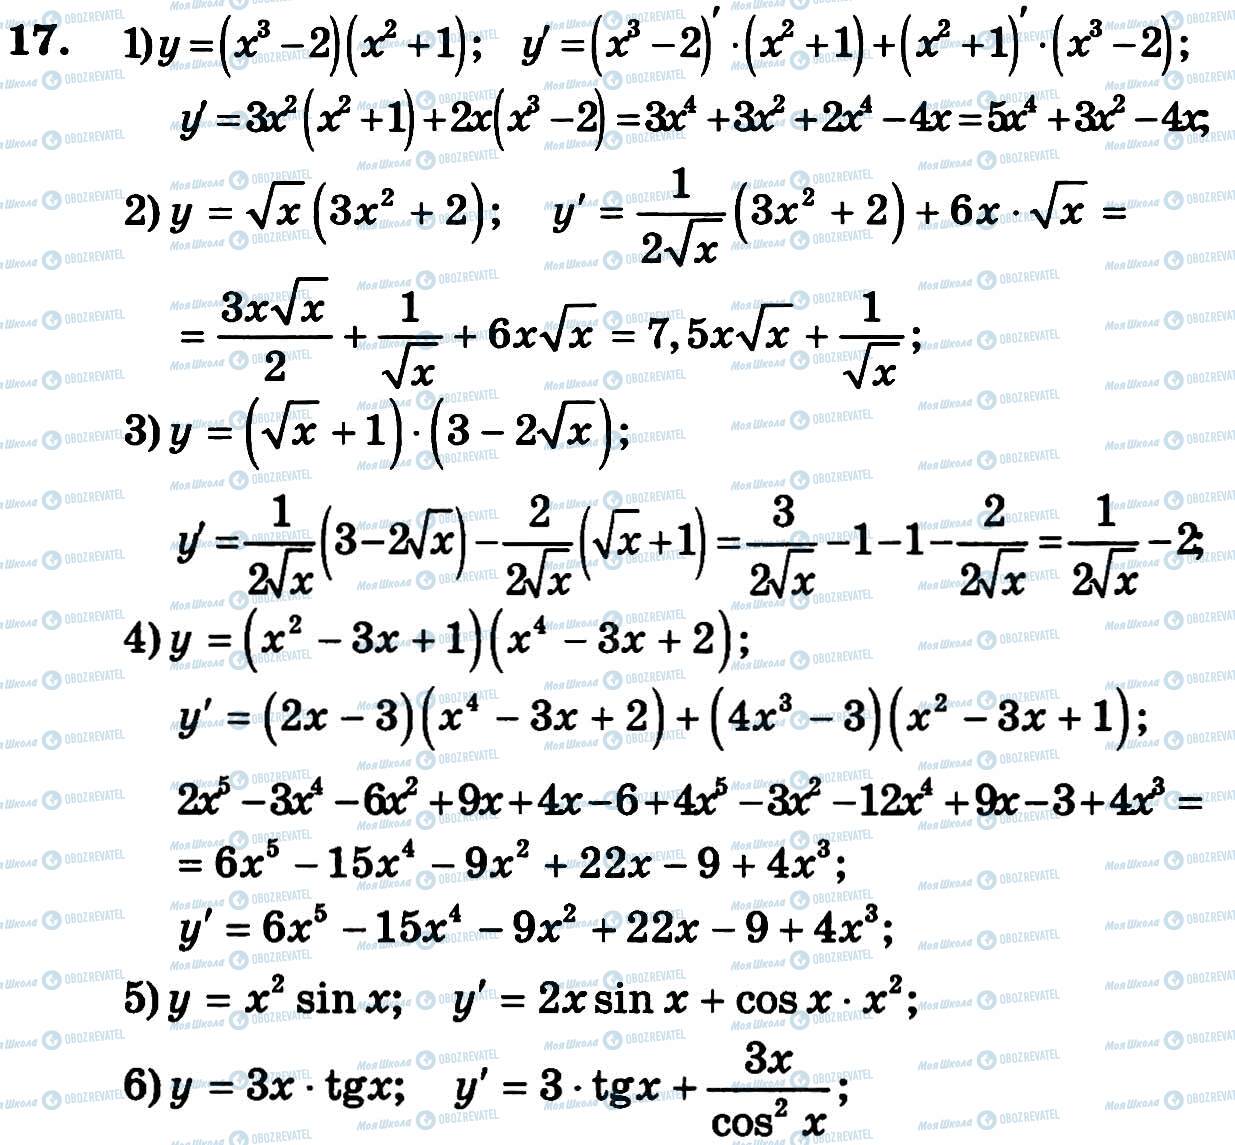 17. 1) y = (x³ − 2)(x² + 1); y′ = (x³ − 2)′ · (x² + 1) + (x² + 1)′ · (x³ − 2);
y′ = 3x²(x² + 1) + 2x(x³ − 2) = 3x⁴ + 3x² + 2x⁴ − 4x = 5x⁴ + 3x² − 4x;
2) y = √x (3x² + 2); y′ = 1/(2√x) (3x² + 2) + 6x · √x =
= 3x√x/2 + 1/√x + 6x√x = 7,5x√x + 1/√x;
3) y = (√x + 1) · (3 − 2√x);
y′ = 1/(2√x) (3 − 2√x) − 2/(2√x) (√x + 1) = 3/(2√x) − 1 − 1 − 2/(2√x) = 1/(2√x) − 2;
4) y = (x² − 3x + 1)(x⁴ − 3x + 2);
y′ = (2x − 3)(x⁴ − 3x + 2) + (4x³ − 3)(x² − 3x + 1);
2x⁵ − 3x⁴ − 6x² + 9x + 4x − 6 + 4x⁵ − 3x² − 12x⁴ + 9x − 3 + 4x³ =
= 6x⁵ − 15x⁴ − 9x² + 22x − 9 + 4x³;
y′ = 6x⁵ − 15x⁴ − 9x² + 22x − 9 + 4x³;
5) y = x² sin x; y′ = 2x sin x + cos x · x²;
6) y = 3x · tg x; y′ = 3 · tg x + 3x/cos² x;